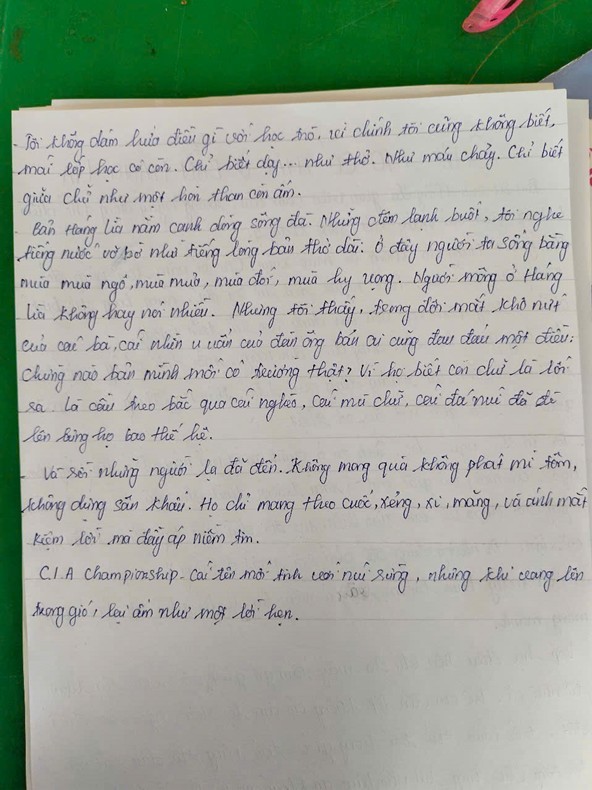 - Tôi không dám hứa điều gì với học trò, vì chính tôi cũng không biết,
mai lớp học có còn. Chỉ biết dạy... như thở. Như máu chảy. Chỉ biết
giữa chữ như một hòn than còn ấm.
- Bản Háng Lìa nằm cạnh dòng sông đá. Những đêm lạnh buốt, tôi nghe
tiếng nước vỡ bờ như tiếng lòng bản thở dài. Ở đây người ta sống bằng
mùa ngô, mùa mưa, mùa đói, mùa hy vọng. Người mông ở Háng
Lìa không hay nói nhiều. Nhưng tôi thấy, trong đôi mắt khô nứt
của các bà, cái nhìn u uẩn của đàn ông bản ai cũng đau đáu một điều:
Chừng nào bản mình mới có trường thật? Vì họ biết con chữ là lối
ra. Là cầu treo bắc qua cái nghèo, cái mù chữ, cái đá núi đã đè
lên lưng họ bao thế hệ.
- Và rồi những người lạ đã đến. Không mang quà không phát mì tôm,
không dựng sân khấu. Họ chỉ mang theo cuốc, xẻng, xi, măng, và ánh mắt
kiệm lời mà đầy ắp niềm tin.
C.I.A Championship - Cái tên mới tinh với núi rừng, nhưng khi vang lên
trong gió, lại ấm như một lời hẹn.